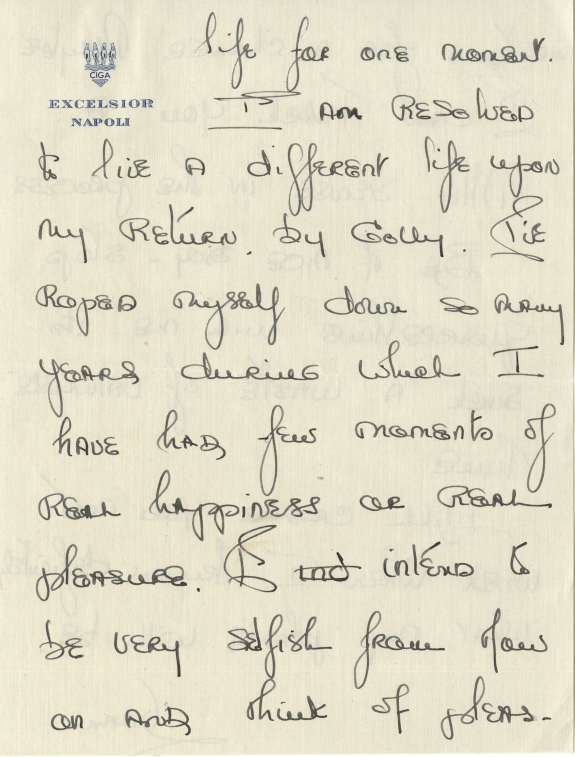 life for one moment.
CIGA
EXCELSIOR
NAPOLI
I am RESOLVED
to live A different life upon
my Return. by Golly I've
Roped myself down so many
years during which I
have had few moments of
Real happiness or Real
pleasure. I intend to
be very selfish from now
on and think of pleas-